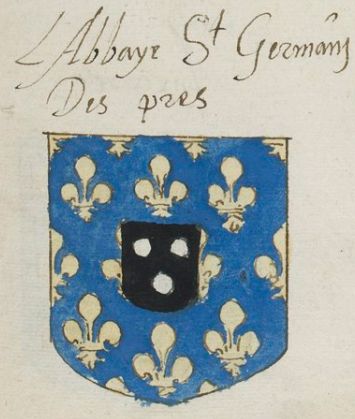 L'Abbaye St Germains
Des pres